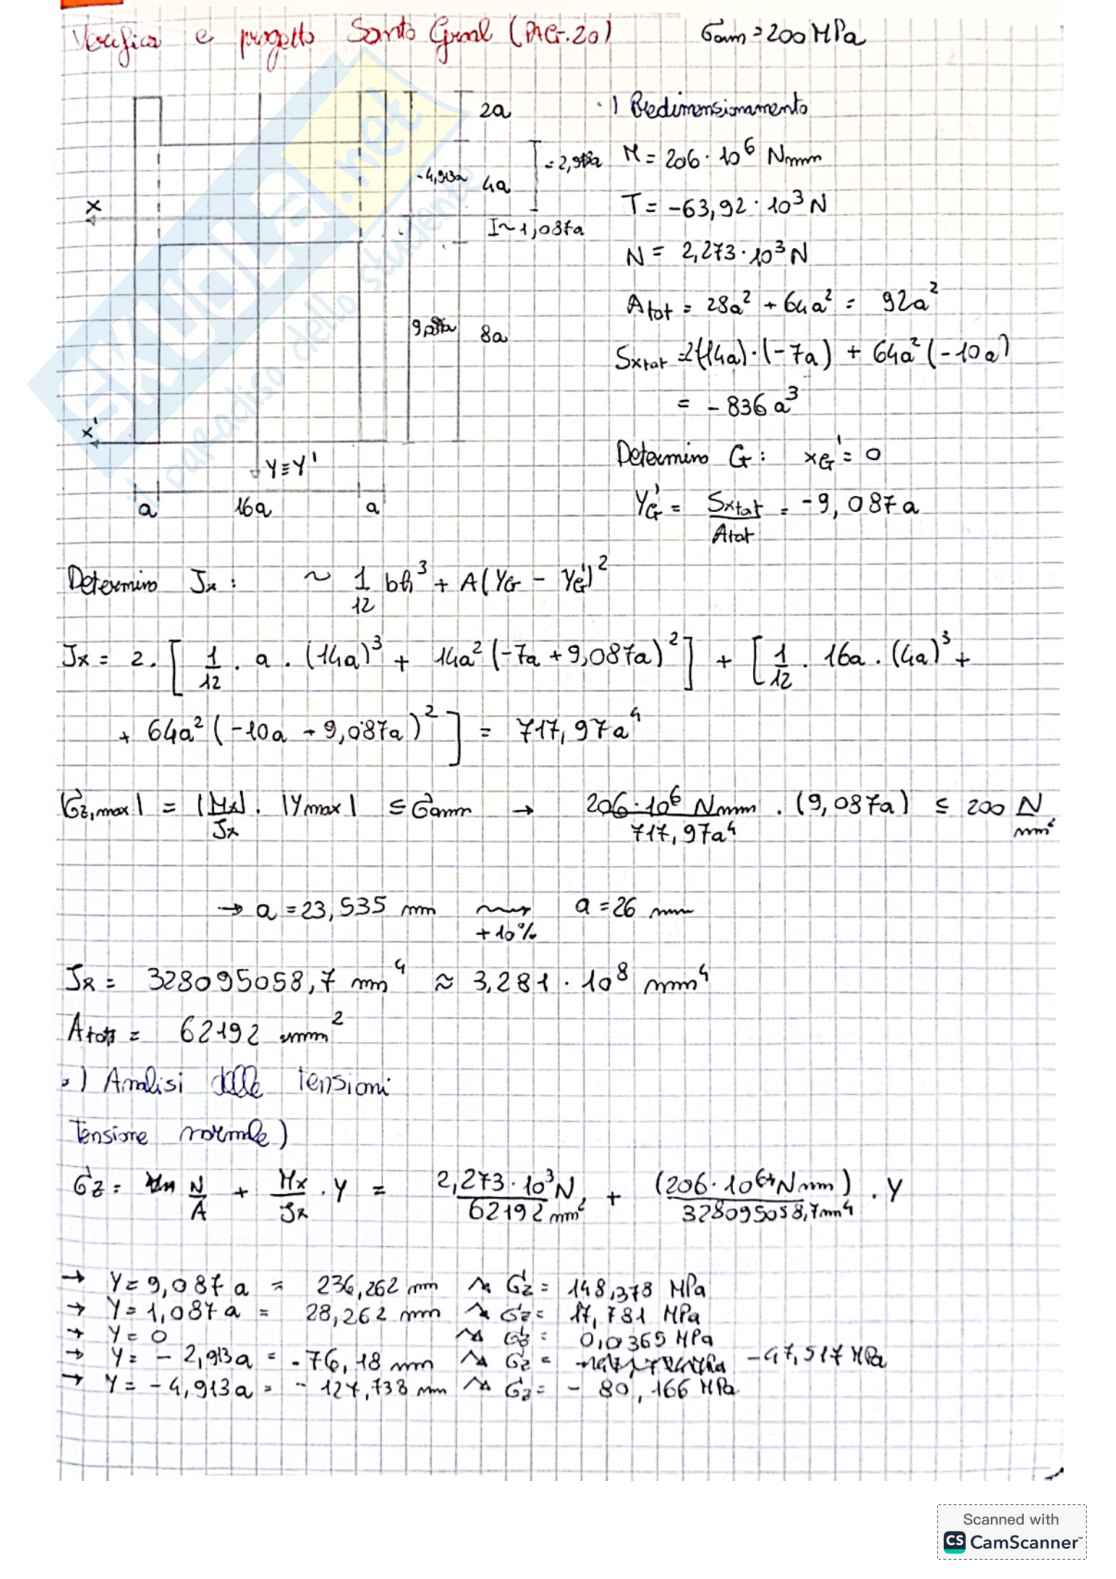 Verifica e progetto Santo Graal (PAG.20) σam = 200 MPa
2a
·) Predimensionamento
-4,913a 4a = 2,913a M = 206·10⁶ Nmm
x
T = -63,92·10³N
I~1,087a
N = 2,273·10³N
Atot = 28a² + 64a² = 92a²
9,087a 8a
Sxtot = 2(14a)·(-7a) + 64a²(-10a)
= -836a³
x'
Y≡Y'
Determino G: xG' = 0
a 16a a
YG' = Sxtot/Atot = -9,087a
Determino Jx: ~ 1/12 bh³ + A(YG - YG')²
Jx = 2·[1/12 · a · (14a)³ + 14a²(-7a+9,087a)²] + [1/12 · 16a · (4a)³ +
+ 64a²(-10a + 9,087a)²] = 717,97a⁴
|σz,max| = |Mx|/Jx · |Ymax| ≤ σamm → 206·10⁶ Nmm/717,97a⁴ · (9,087a) ≤ 200 N/mm²
→ a = 23,535 mm +10% a = 26 mm
Jx = 328095058,7 mm⁴ ≈ 3,281·10⁸ mm⁴
Atot = 62192 mm²
·) Analisi delle tensioni
Tensione normale)
σz = N/A + Mx/Jx · Y = 2,273·10³N/62192mm² + (206·10⁶Nmm)/328095058,7mm⁴ · Y
→ Y = 9,087a = 236,262 mm σz = 148,378 MPa
→ Y = 1,087a = 28,262 mm σz = 17,781 MPa
→ Y = 0 σz = 0,0365 MPa
→ Y = -2,913a = -76,18 mm σz = -47,517 MPa
→ Y = -4,913a = -127,738 mm σz = -80,166 MPa
SKUOLA.net
il paradiso dello studente
Scanned with
CS CamScanner